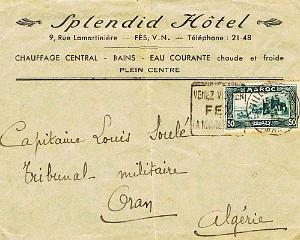 Splendid Hôtel
9, Rue Lamartinière — FÈS, V.N. — Téléphone : 21-48
CHAUFFAGE CENTRAL - BAINS - EAU COURANTE chaude et froide
PLEIN CENTRE
MAROC
50 50
Capitaine Louis Soulé
Tribunal militaire
Oran
Algérie